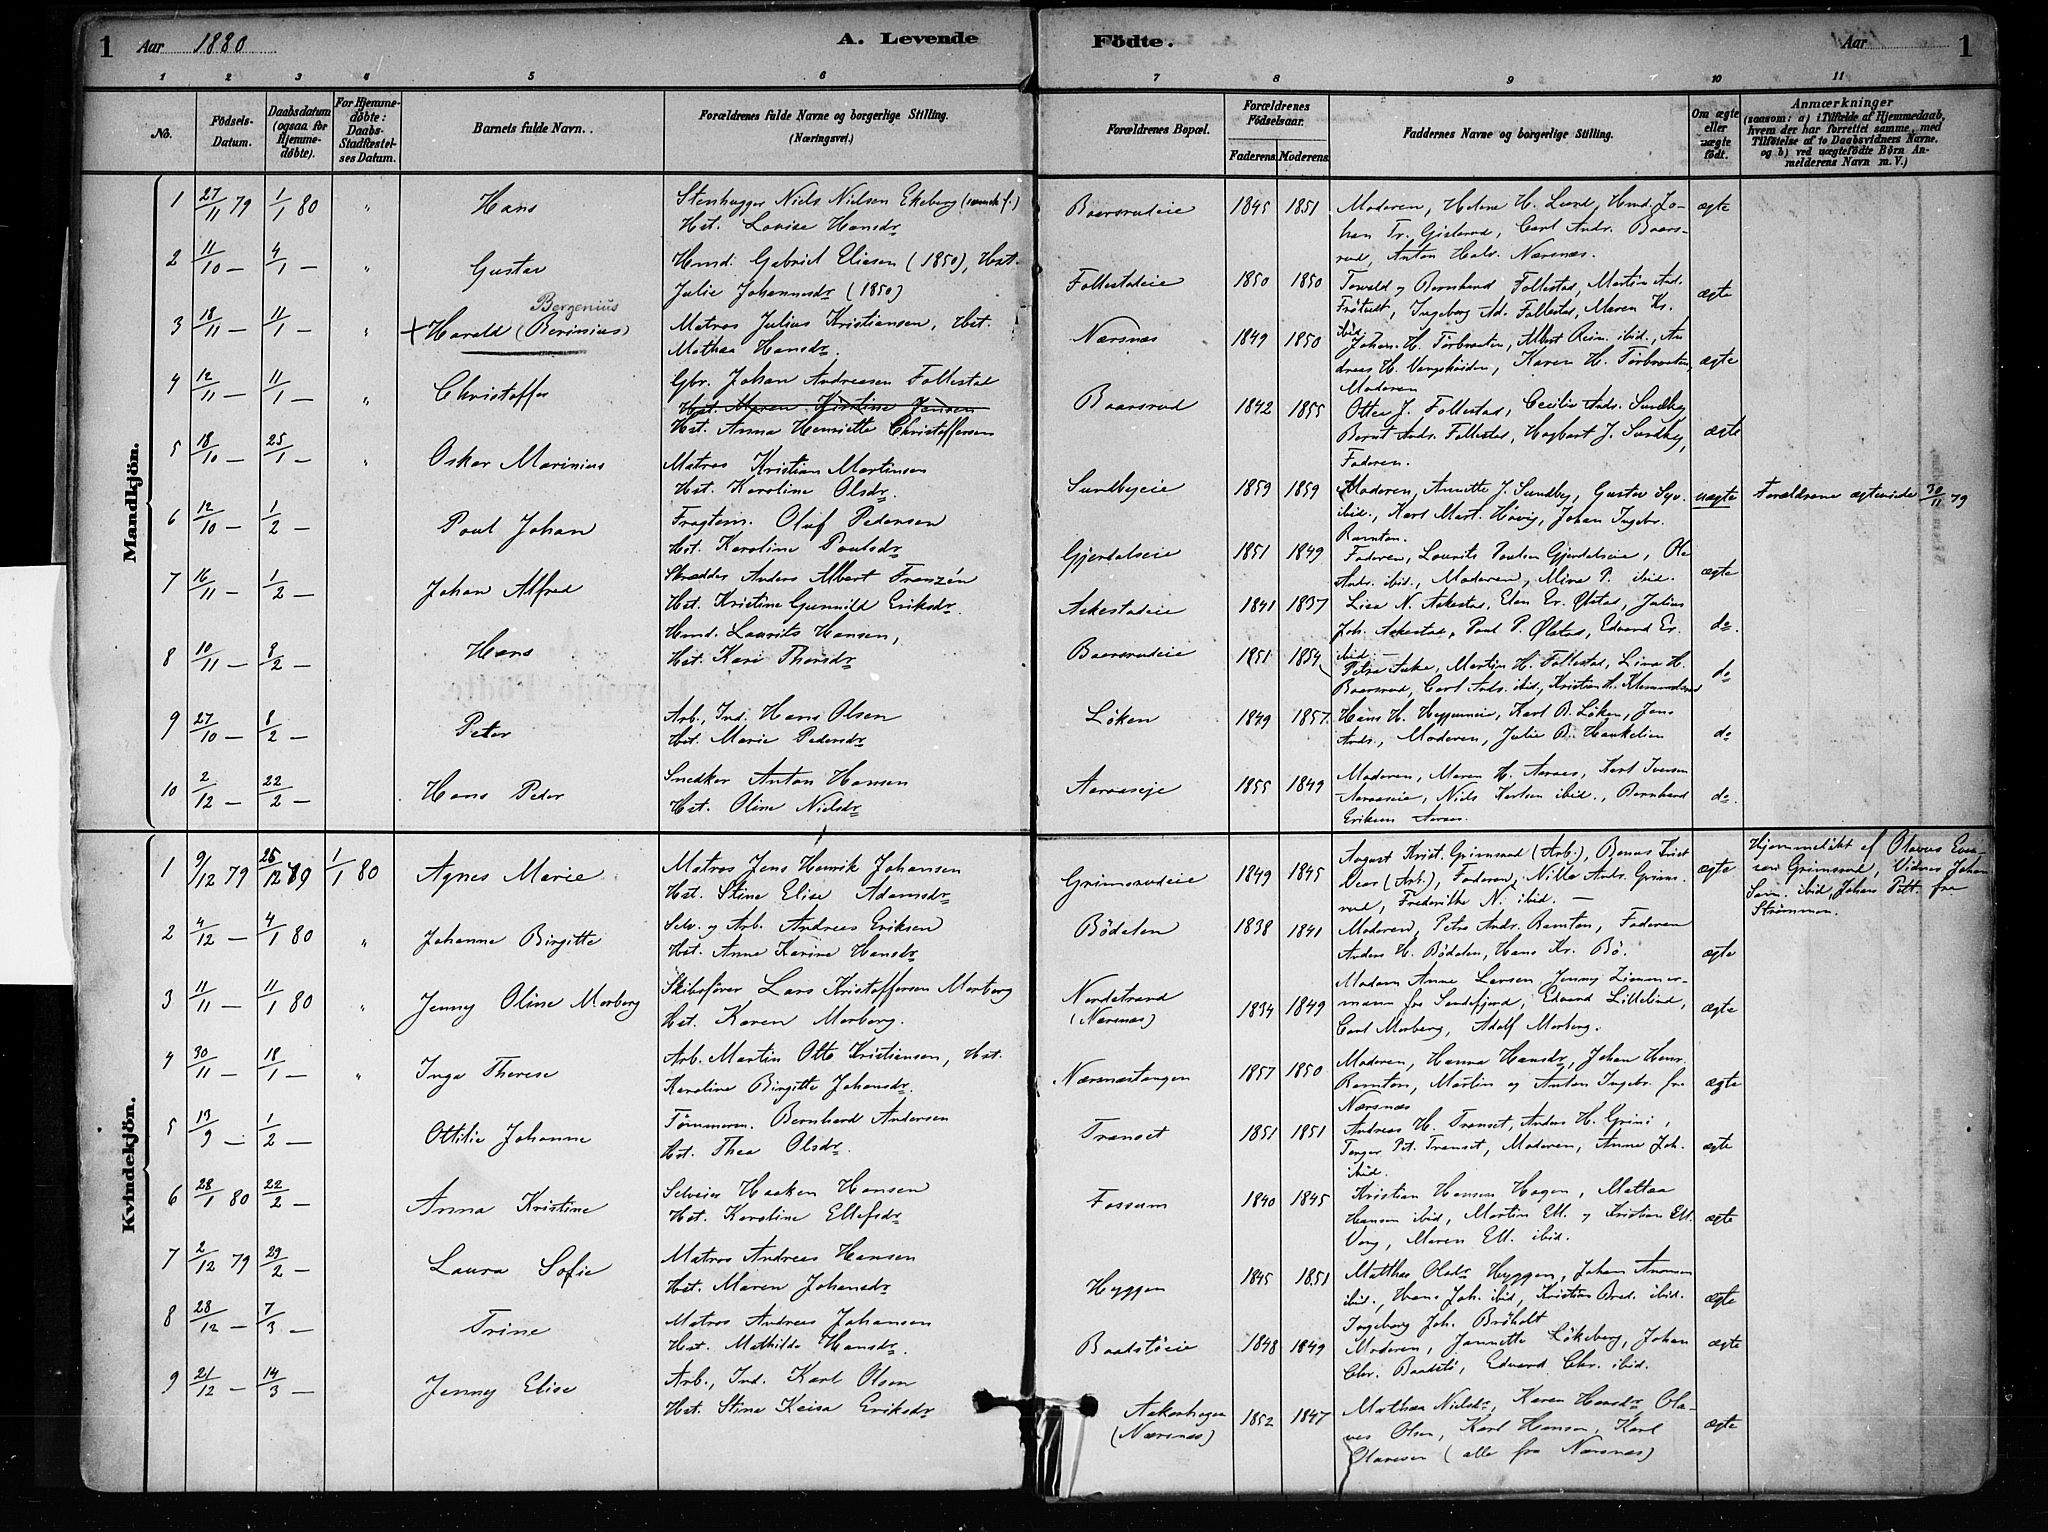 1 Aar 1880 A. Levende Födte. Aar 1
1 2 3 4 5 6 7 8 9 10 11
No. Födsels-Datum. Daabsdatum (ogsaa for Hjemmedøbte). For Hjemmedøbte: Daabs-Stadfæstelses Datum. Barnets fulde Navn. Forældrenes fulde Navne og borgerlige Stilling. (Næringsvei.) Forældrenes Bopæl. Forældrenes Födselsaar. Faderens. Moderens. Faddernes Navne og borgerlige Stilling. Om ægte eller uægte födt. Anmærkninger (saasom: a) i Tilfælde af Hjemmedaab, hvem der har forrettet samme, med Tilföielse af to Daabsvidners Navne, og b) ved uægtefödte Börn Anmelderens Navn m. V.)
Mandkjön.
1 27/11 79 1/1 80 " Hans Stenhugger Niels Nielsen Ekeberg (svensk f.)
Hst. Lovise Hansdr
Baarsrudeie 1845 1851 Moderen, Helene H. Lund, Hmd. Jo-
han Tr. Gisterud, Carl Andr. Baars-
rud, Anton Halv. Nærsnæs. ægte
2 11/10 — 4/1 — " Gustav Hmd. Gabriel Eliesen (1850), Hst.
Julie Johannesdr (1850)
Follestadeie 1850 1850 Torvald og Bernhard Follestad, Martin And.
Frötvedt, Ingeborg Ad. Follestad, Maren Kr.
ibid. ægte
3 18/11 — 11/1 — " Bergenius
× Harald (Berinius) Matros Julius Kristiansen, Hst.
Mathea Hansdr.
Nærsnæs 1849 1850 Johan H. Torbraaten, Albert Reim. ibid., An-
dreas H. Vangsheiden, Karen H. Torbraaten,
Moderen ægte
4 12/11 — 11/1 — " Christoffer Gbr. Johan Andreasen Follestad
Hst. Maren Kirstine Jensen
Hst. Anna Henriette Christoffersen
Baarsrud 1842 1855 Ottea J. Follestad, Cecilie Andr. Sundby,
Bernt Andr. Follestad, Hagbart J. Sundby,
Faderen. ægte
5 18/10 — 25/1 — " Oskar Marinius Matros Kristian Martinsen
Hst. Karoline Olsdr.
Sundbyeie 1859 1859 Moderen, Annette J. Sundby, Gustav Syv.
ibid., Karl Mart. Høvig, Johan Ingebr.
Ramton. uægte Forældrene ægteviede 30/11 79
6 12/10 — 1/2 — Poul Johan Fragtem. Oluf Pedersen
Hst. Karoline Poulsdr
Gjerdalseie 1851 1849 Faderen, Laurits Poulsen Gjerdalseie, Ole
Andr. ibid., Moderen, Mina P. ibid. ægte
7 16/11 — 1/2 — Johan Alfred Skrædder Anders Albert Franzén
Hst. Kristine Gunnild Eriksdr.
Askestadeie 1841 1837 Lise N. Askestad, Elen Er. Ølstad, Julius
Joh. Askestad, Poul P. Ølstad, Edvard Er.
ibid. — do.
8 10/11 — 8/2 — Hans Hmd. Laurits Hansen,
Hst. Kari Thorsdr
Baarsrudeie 1851 1854 Petra Aske, Martin H. Follestad, Lina H.
Baarsrud, Carl Andr. ibid., Kristian A. Klemmetsrud do
9 27/10 — 8/2 — Peter Arb., Ind. Hans Olsen
Hst. Marie Pedersdr
Löken 1849 1857. Hans H. Heggumeie, Karl B. Löken, Jens
Andr., Moderen, Julie B. Haukelien do
10 2/12 — 22/2 — Hans Peder Snedker Anton Hansen
Hst. Oline Nielsdr
Aaraaseie 1855 1849 Moderen, Maren H. Aaraas, Karl Iversen
Aaraaseie, Niels Karlsen ibid., Bernhard
Eriksen Aaraas. do.
Kvindekjön.
1 9/12 79 26/12 79 1/1 80 Agnes Marie Matros Jens Henrik Johansen
Hst. Stine Elise Adamsdr
Grimsrudeie 1849 1845 August Krist. Grimsrud (Arb.),
(Arb.), Faderen, Nille Andr. Grims-
rud, Frederikke N. ibid. — ægte Hjemmedöbt af Olavus Even-
sen Grimsrud, Vidner Johan
Sam. ibid, Johan Pett. fra
Strömmen.
2 4/12 — 4/1 80 " Johanne Birgitte Selv. og Arb. Andreas Eriksen
Hst. Anne Karine Hansdr
Bödalen 1838 1841 Moderen, Petra Andr. Ramton, Faderen
Anders H. Bödalen, Hans Kr. Bö. ægte
3 11/11 — 11/1 80 " Jenny Oline Morberg Skibsförer Lars Kristoffersen Morberg
Hst. Karen Morberg.
Nordstrand
(Nærsnæs) 1834 1849 Madam Anne Larsen, Jenny Zimmer-
mann fra Sandefjord, Edvard Lillelind,
Carl Morberg, Adolf Morberg. ægte
4 30/11 — 18/1 — " Inga Therese Arb. Martin Otto Kristiansen, Hst.
Karoline Birgitte Johansdr.
Nærsnæstangen 1857 1850 Moderen, Hanna Hansdr, Johan Henr.
Ramton, Martin og Anton Ingebr. fra
Nærsnæs ægte
5 13/9 — 1/2 — Ottilie Johanne Tömmerm. Bernhard Andersen
Hst. Thea Olsdr.
Transet 1851 1851 Andreas H. Transet, Anders H. Grini,
Torger Pet. Transet, Moderen, Anne Joh.
ibid. ægte
6 28/1 80 22/2 — Anna Kristine Selveier Haaken Hansen
Hst. Karoline Ellefsdr
Fossum 1840 1845 Kristian Hansen Hagen, Mathea
Hansen ibid, Martin Ell. og Kristian Ell.
Vang, Maren Ell. ibid. ægte
7 2/12 79 29/2 — Laura Sofie Matros Andreas Hansen
Hst. Maren Johansdr
Hyggen 1845 1851 Matthea Olsdr Hyggen, Johan Aronsen
ibid., Hans Joh. ibid, Kristian Bred. ibid.
Ingeborg Joh. Bröholt ægte
8 28/12 — 7/3 — Trine Matros Andreas Johansen
Hst. Mathilde Hansdr.
Baadstöeie 1848 1849 Moderen, Jannette Lökeberg, Johan
Chr. Baadstö, Edvard Chr. ibid. ægte
9 21/12 — 14/3 — Jenny Elise Arb., Ind. Karl Olsen
Hst. Stina Keisa Eriksdr
Aakerhagen
(Nærsnæs) 1852 1847 Mathea Nielsdr, Karen Hansdr, Ola-
ves Olsen, Karl Hansen, Karl
Olavesen (alle fra Nærsnæs) ægte